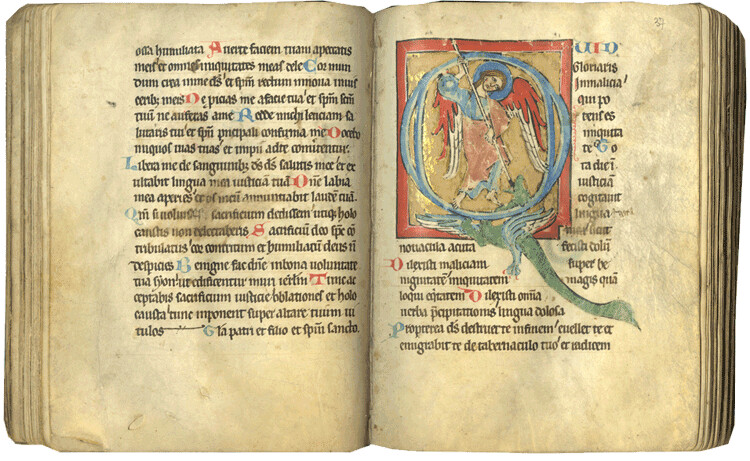 ossa humiliata Auerte faciem tuam apeccatis
meis et omnes iniquitates meas dele Cor mun
dum crea inme ds et spm rectum innoua inuis
ceribus meis Ne picias me afacie tua et spm scm
tuum ne auferas ame Redde michi leticiam sa
lutaris tui et spu principali confirma me Docebo
iniquos uias tuas et impii adte conuertentur
Libera me de sanguinibus ds ds salutis mee et ex
ultabit lingua mea iusticiam tuam Dne labia
mea aperies et os meum annuntiabit laudem tuam
Qm si uoluisses sacrificium dedissem utique holo
caustis non delectaberis Sacrificium deo sps con
tribulatus cor contritum et humiliatum deus n
despicies Benigne fac dne inbona uoluntate
tua syon ut edificentur muri ierlm Tunc ac
ceptabis sacrificium iusticie oblationes et holo
causta tunc imponent super altare tuum ui
tulos Gla patri et filio et spui sancto
37
QUID
Gloriaris
inmalicia
qui po
tens es
iniquita
te To
ta die in
iusticiam
cogitauit
lingua
tua sicut
nouacula acuta fecisti dolum
Dilexisti maliciam super be
nignitatem iniquitatem magis quam
loqui equitatem Dilexisti omnia
uerba precipitationis lingua dolosa
Propterea ds destruet te infinem euellet te et
emigrabit te de tabernaculo tuo et radicem